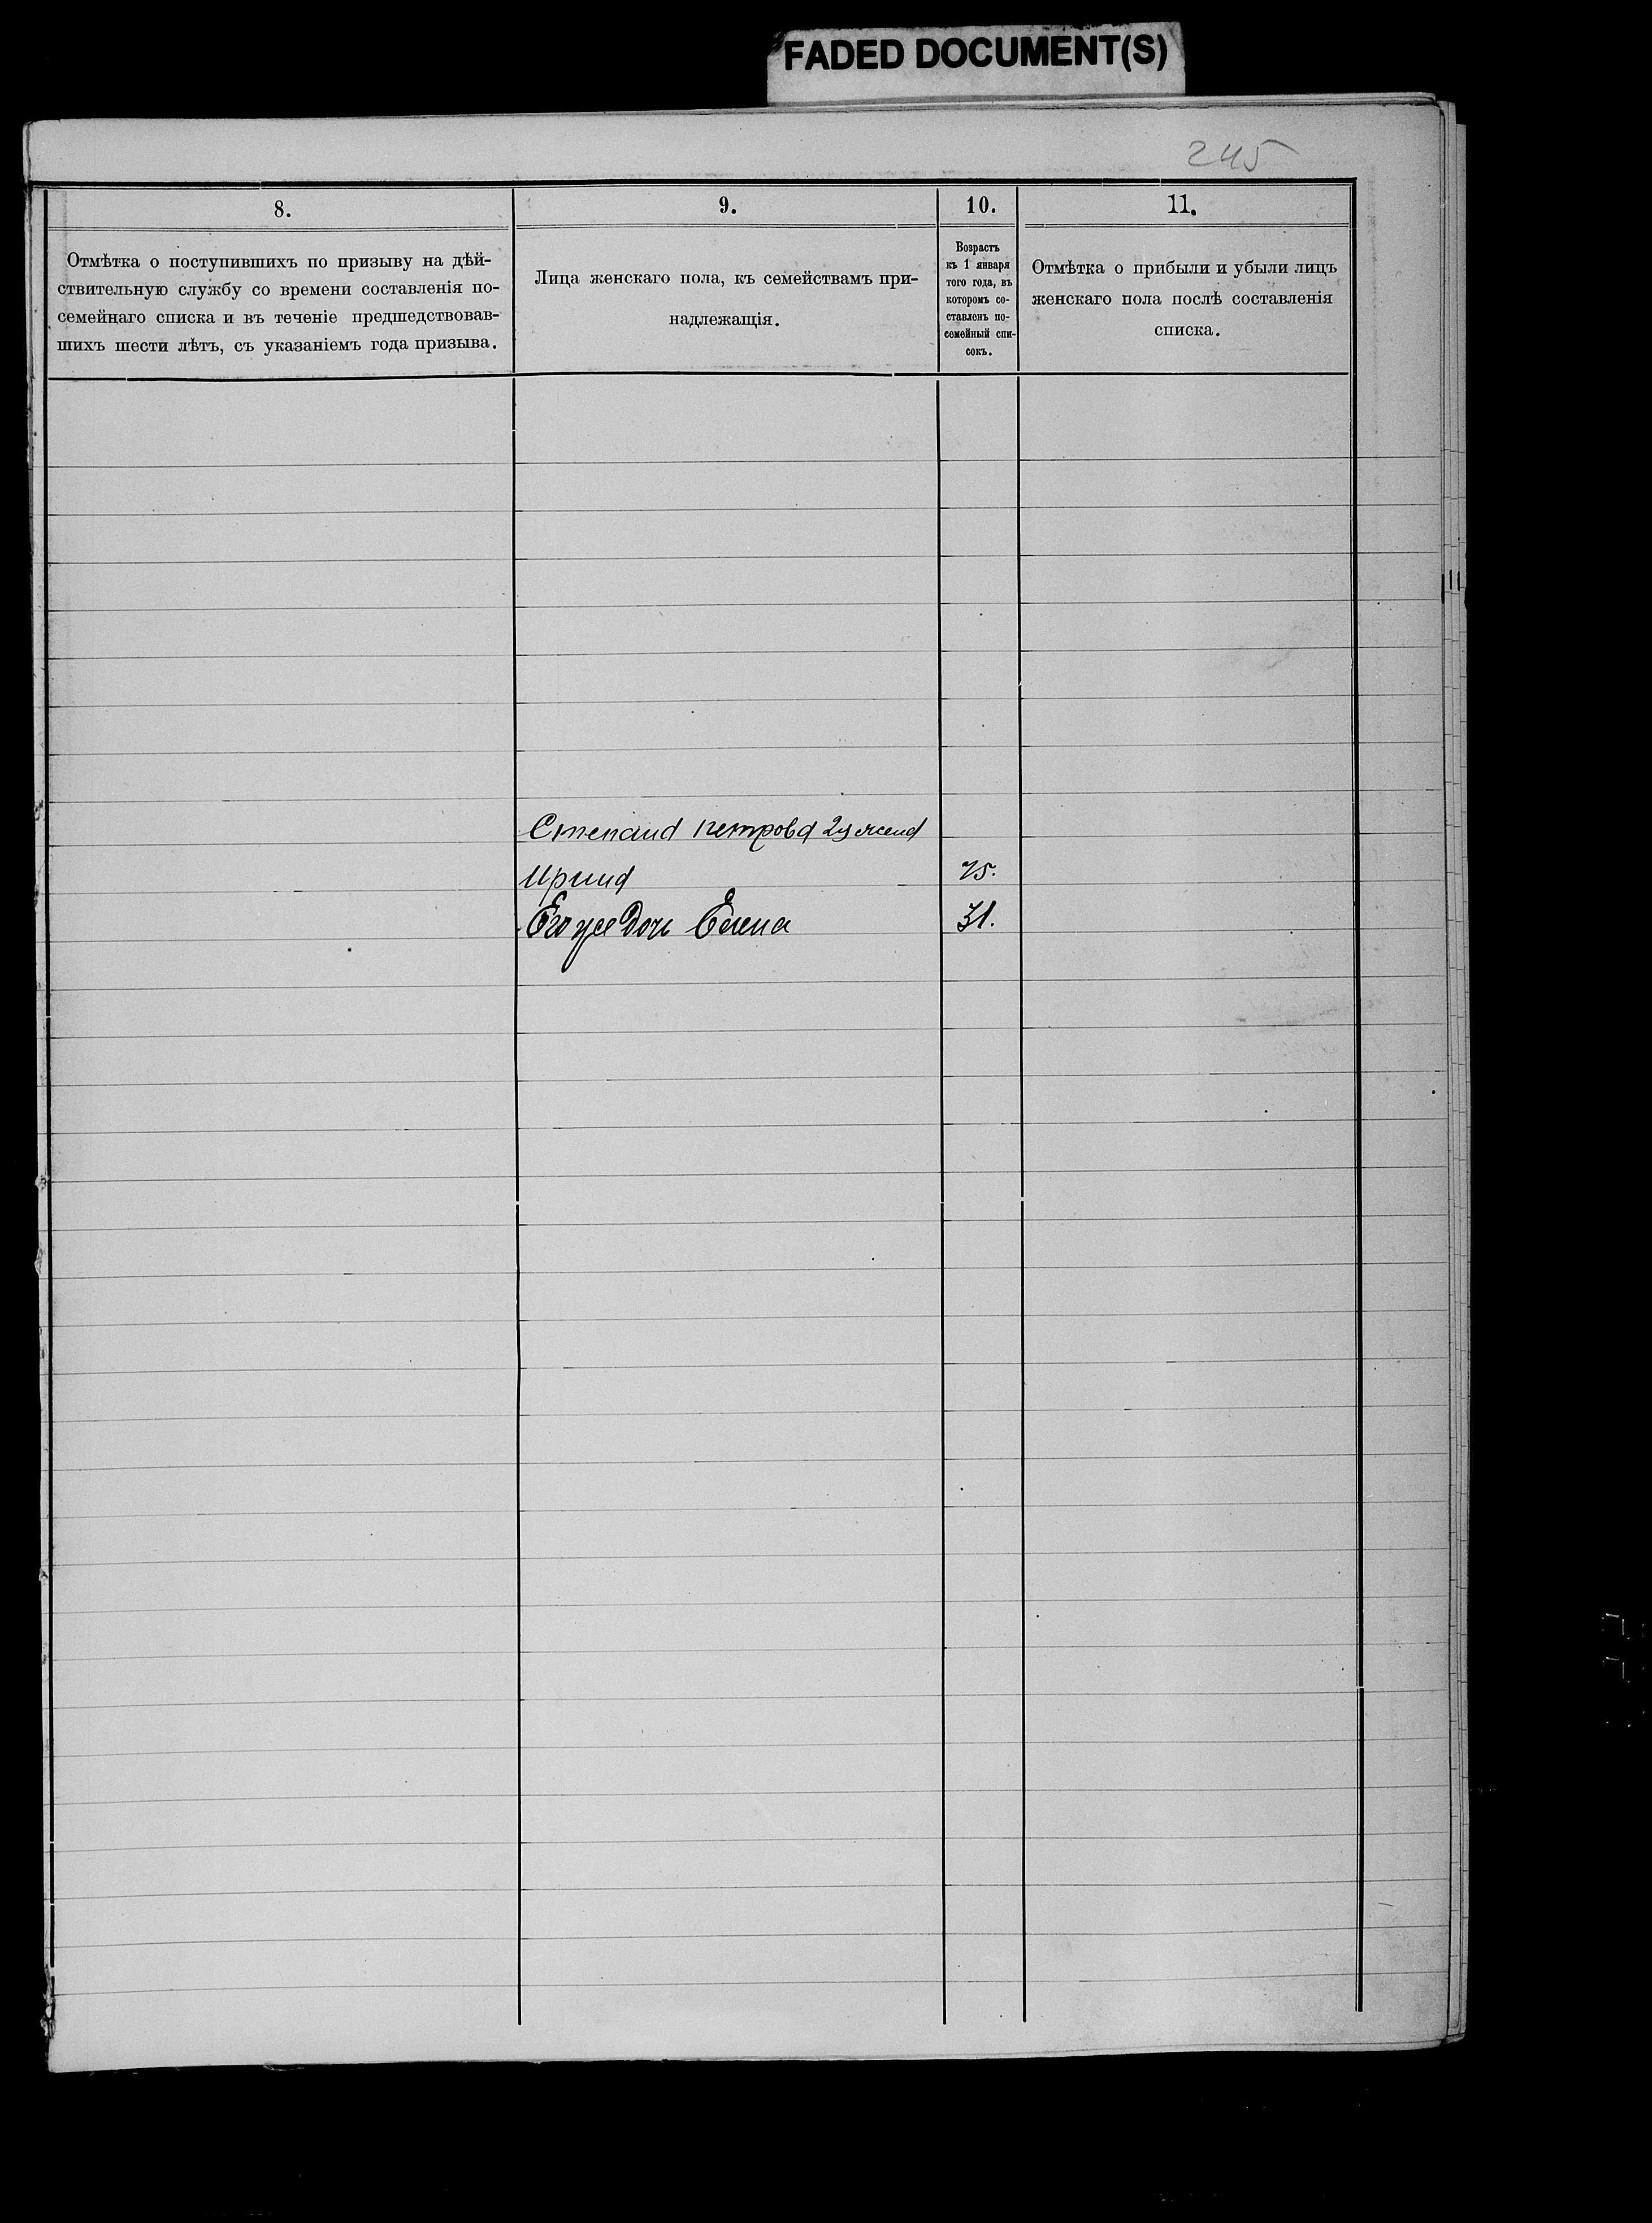 FADED DOCUMENT(S)
245
8.
9.
10.
11.
Отмѣтка о поступившихъ по призыву на дѣй-
ствительную службу со времени составленія по-
семейнаго списка и въ теченіе предшедствовав-
шихъ шести лѣтъ, съ указаніемъ года призыва.
Лица женскаго пола, къ семействамъ при-
надлежащія.
Возрастъ
къ 1 января
того года, въ
которомъ со-
ставленъ по-
семейный спи-
сокъ.
Отмѣтка о прибыли и убыли лицъ
женскаго пола послѣ составленія
списка.
Степана Петрова 2я жена
Ирина 75.
Его же дочь Елена 31.